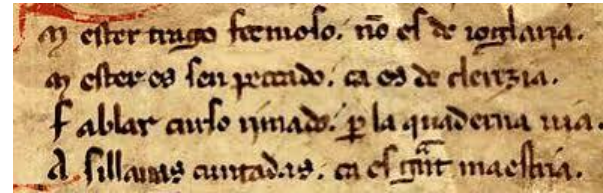 M ester trago fermoso. nõ es de ioglaria.
M ester es sen peccado. ca es de clerezia.
F ablar curso rimado. ꝑ la quaderna uia.
A sillauas cuntadas. ca es gᷓnt maestria.